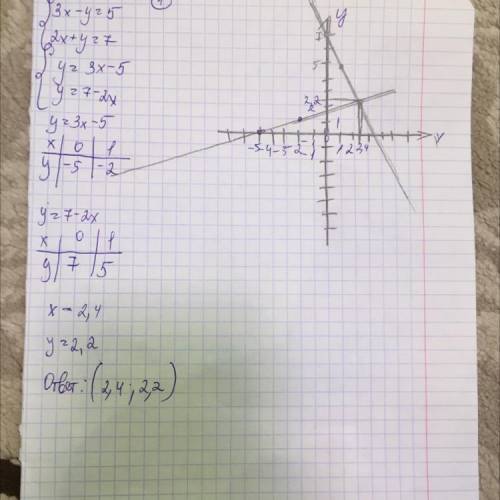 3x-y=5
2x+y=7
y=3x-5
y=7-2x
y=3x-5
x 0 1
y -5 -2
y=7-2x
x 0 1
y 7 5
x - 2,4
y=2,2
Ответ: (2,4; 2,2)
y
5
2,2
2
1
-5 -4 -5 -2 -1 0 1 2 3 4